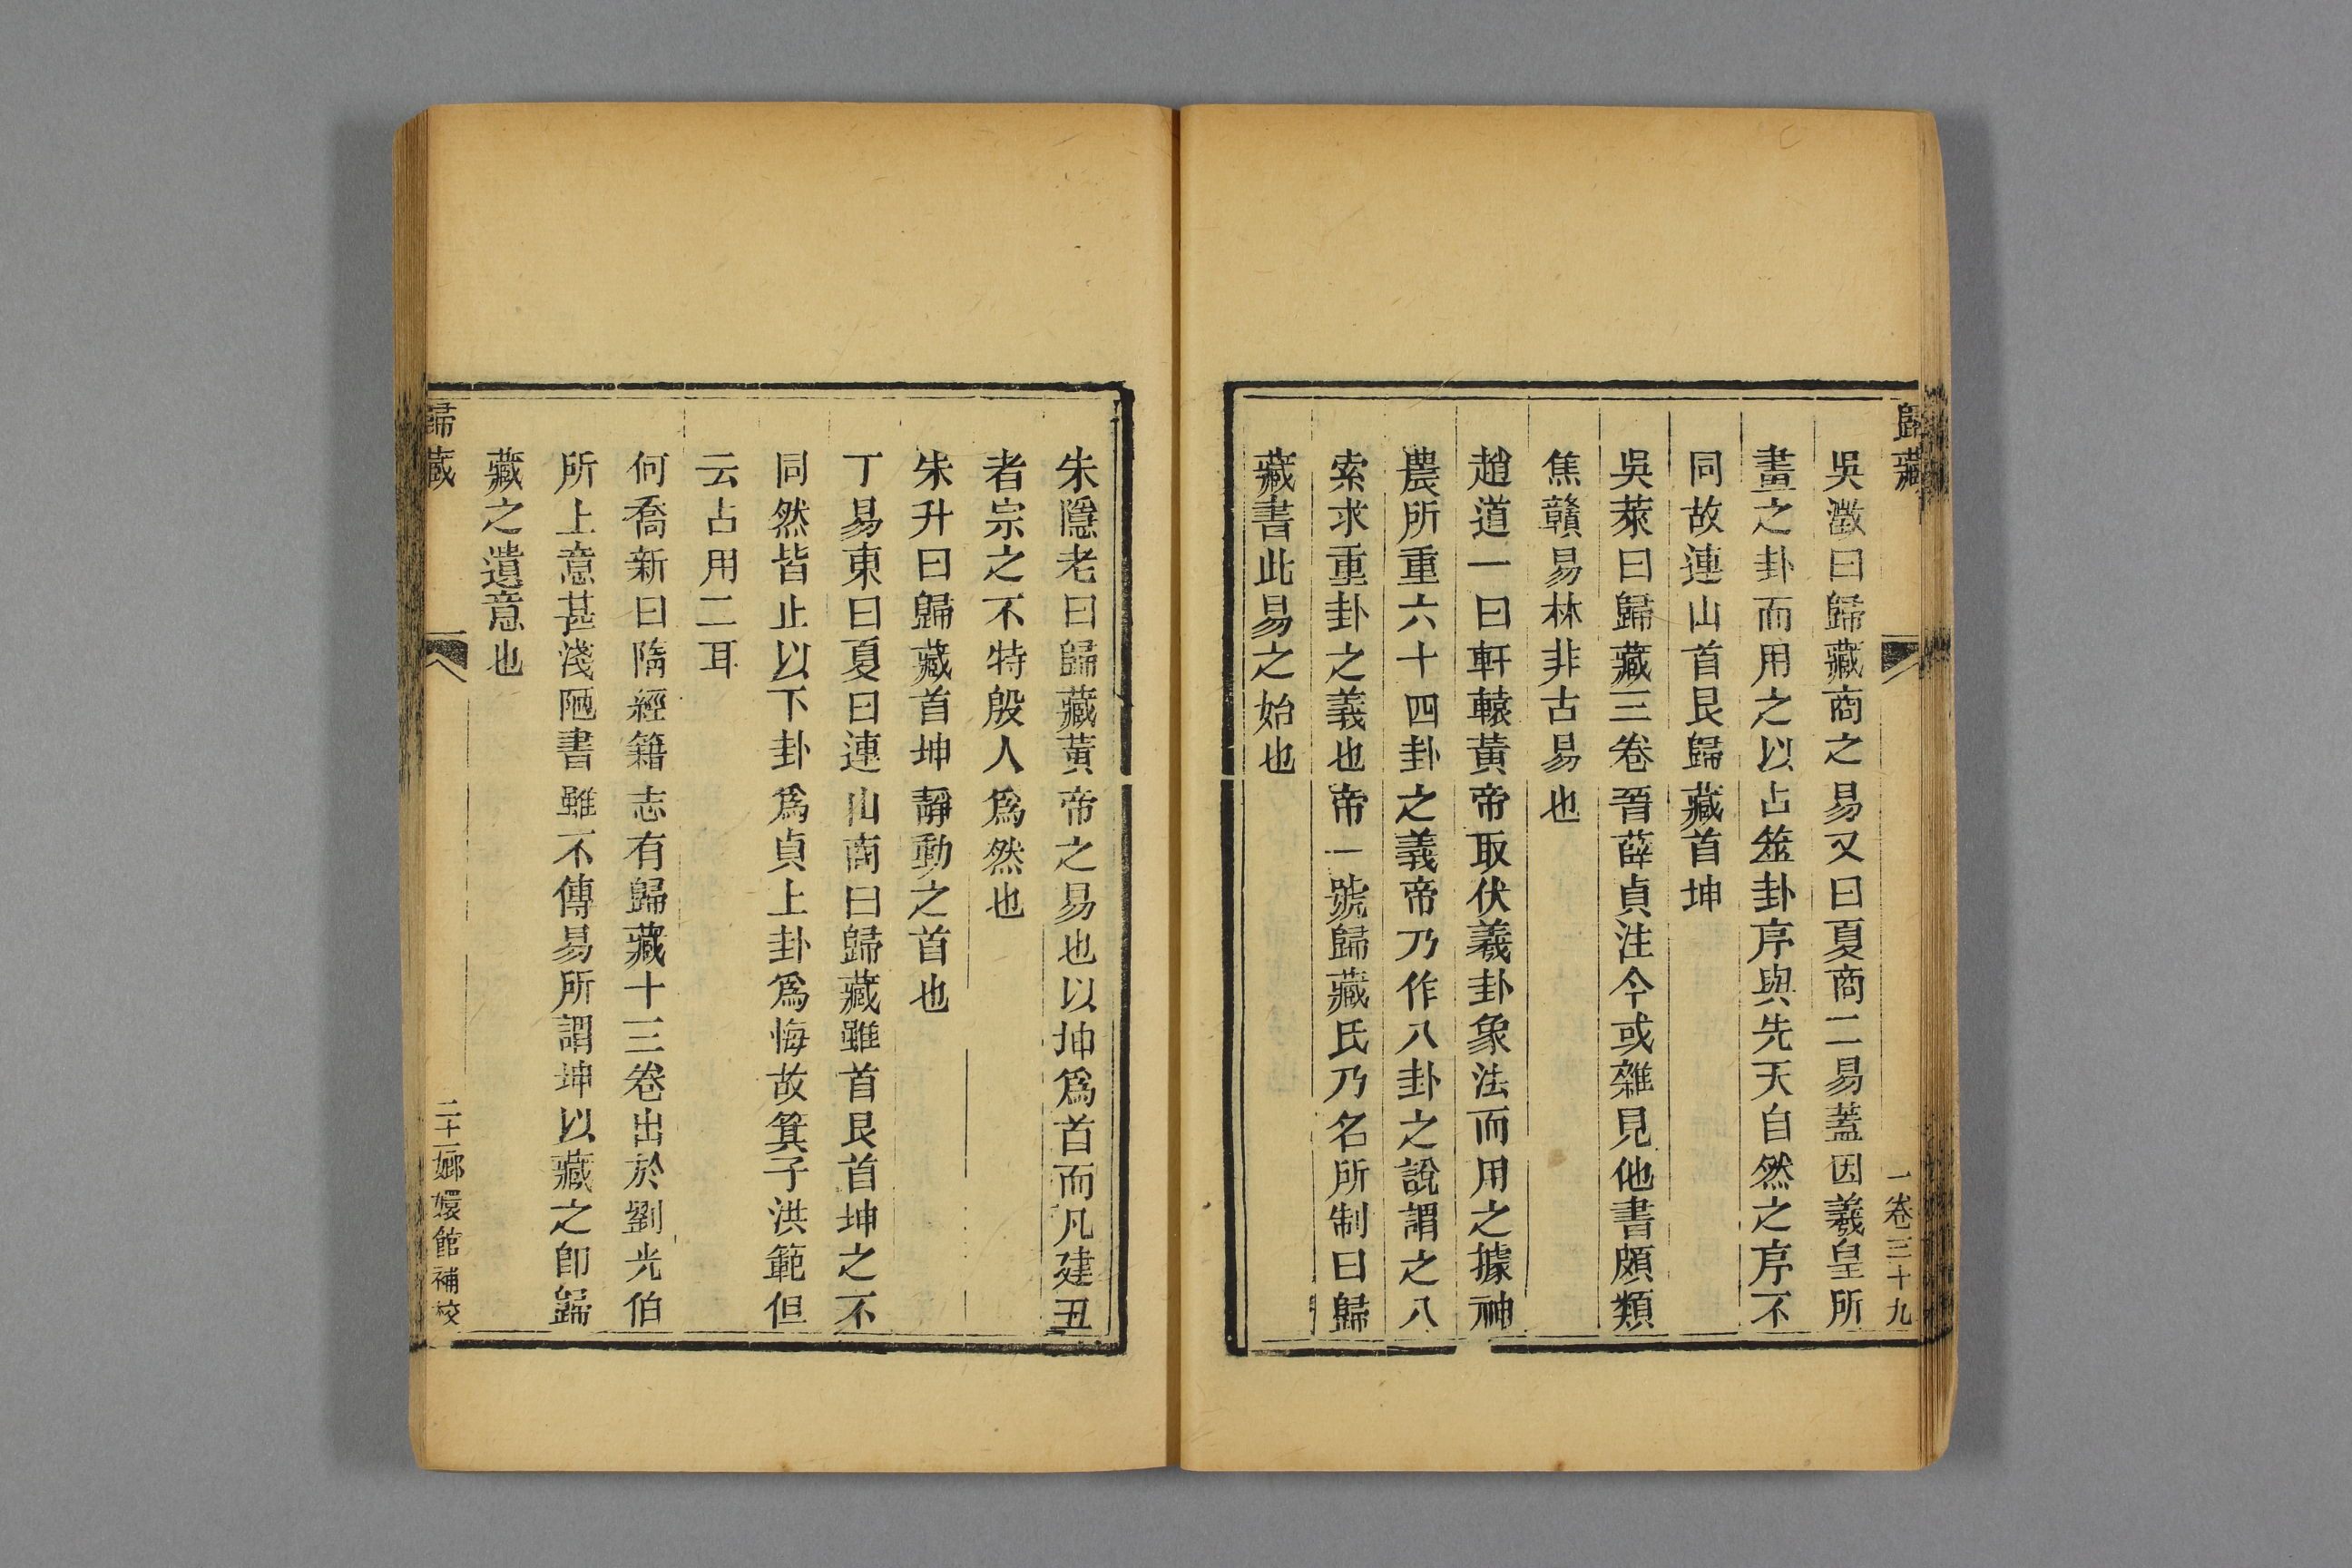 歸藏
一卷三十九
吳澂曰歸藏商之易又曰夏商二易蓋因羲皇所
畫之卦而用之以占筮卦序與先天自然之序不
同故連山首艮歸藏首坤
吳萊曰歸藏三卷晉薛貞注今或雜見他書頗類
焦贛易林非古易也
趙道一曰軒轅黃帝取伏羲卦象法而用之據神
農所重六十四卦之義帝乃作八卦之說謂之八
索求重卦之義也帝一號歸藏氏乃名所制曰歸
藏書此易之始也
朱隱老曰歸藏黃帝之易也以坤爲首而凡建丑
者宗之不特殷人爲然也
朱升曰歸藏首坤靜動之首也
丁易東曰夏曰連山商曰歸藏雖首艮首坤之不
同然皆止以下卦爲貞上卦爲悔故箕子洪範但
云占用二耳
何喬新曰隋經籍志有歸藏十三卷出於劉光伯
所上意甚淺陋書雖不傳易所謂坤以藏之卽歸
藏之遺意也
歸藏
二十一嫏嬛館補校